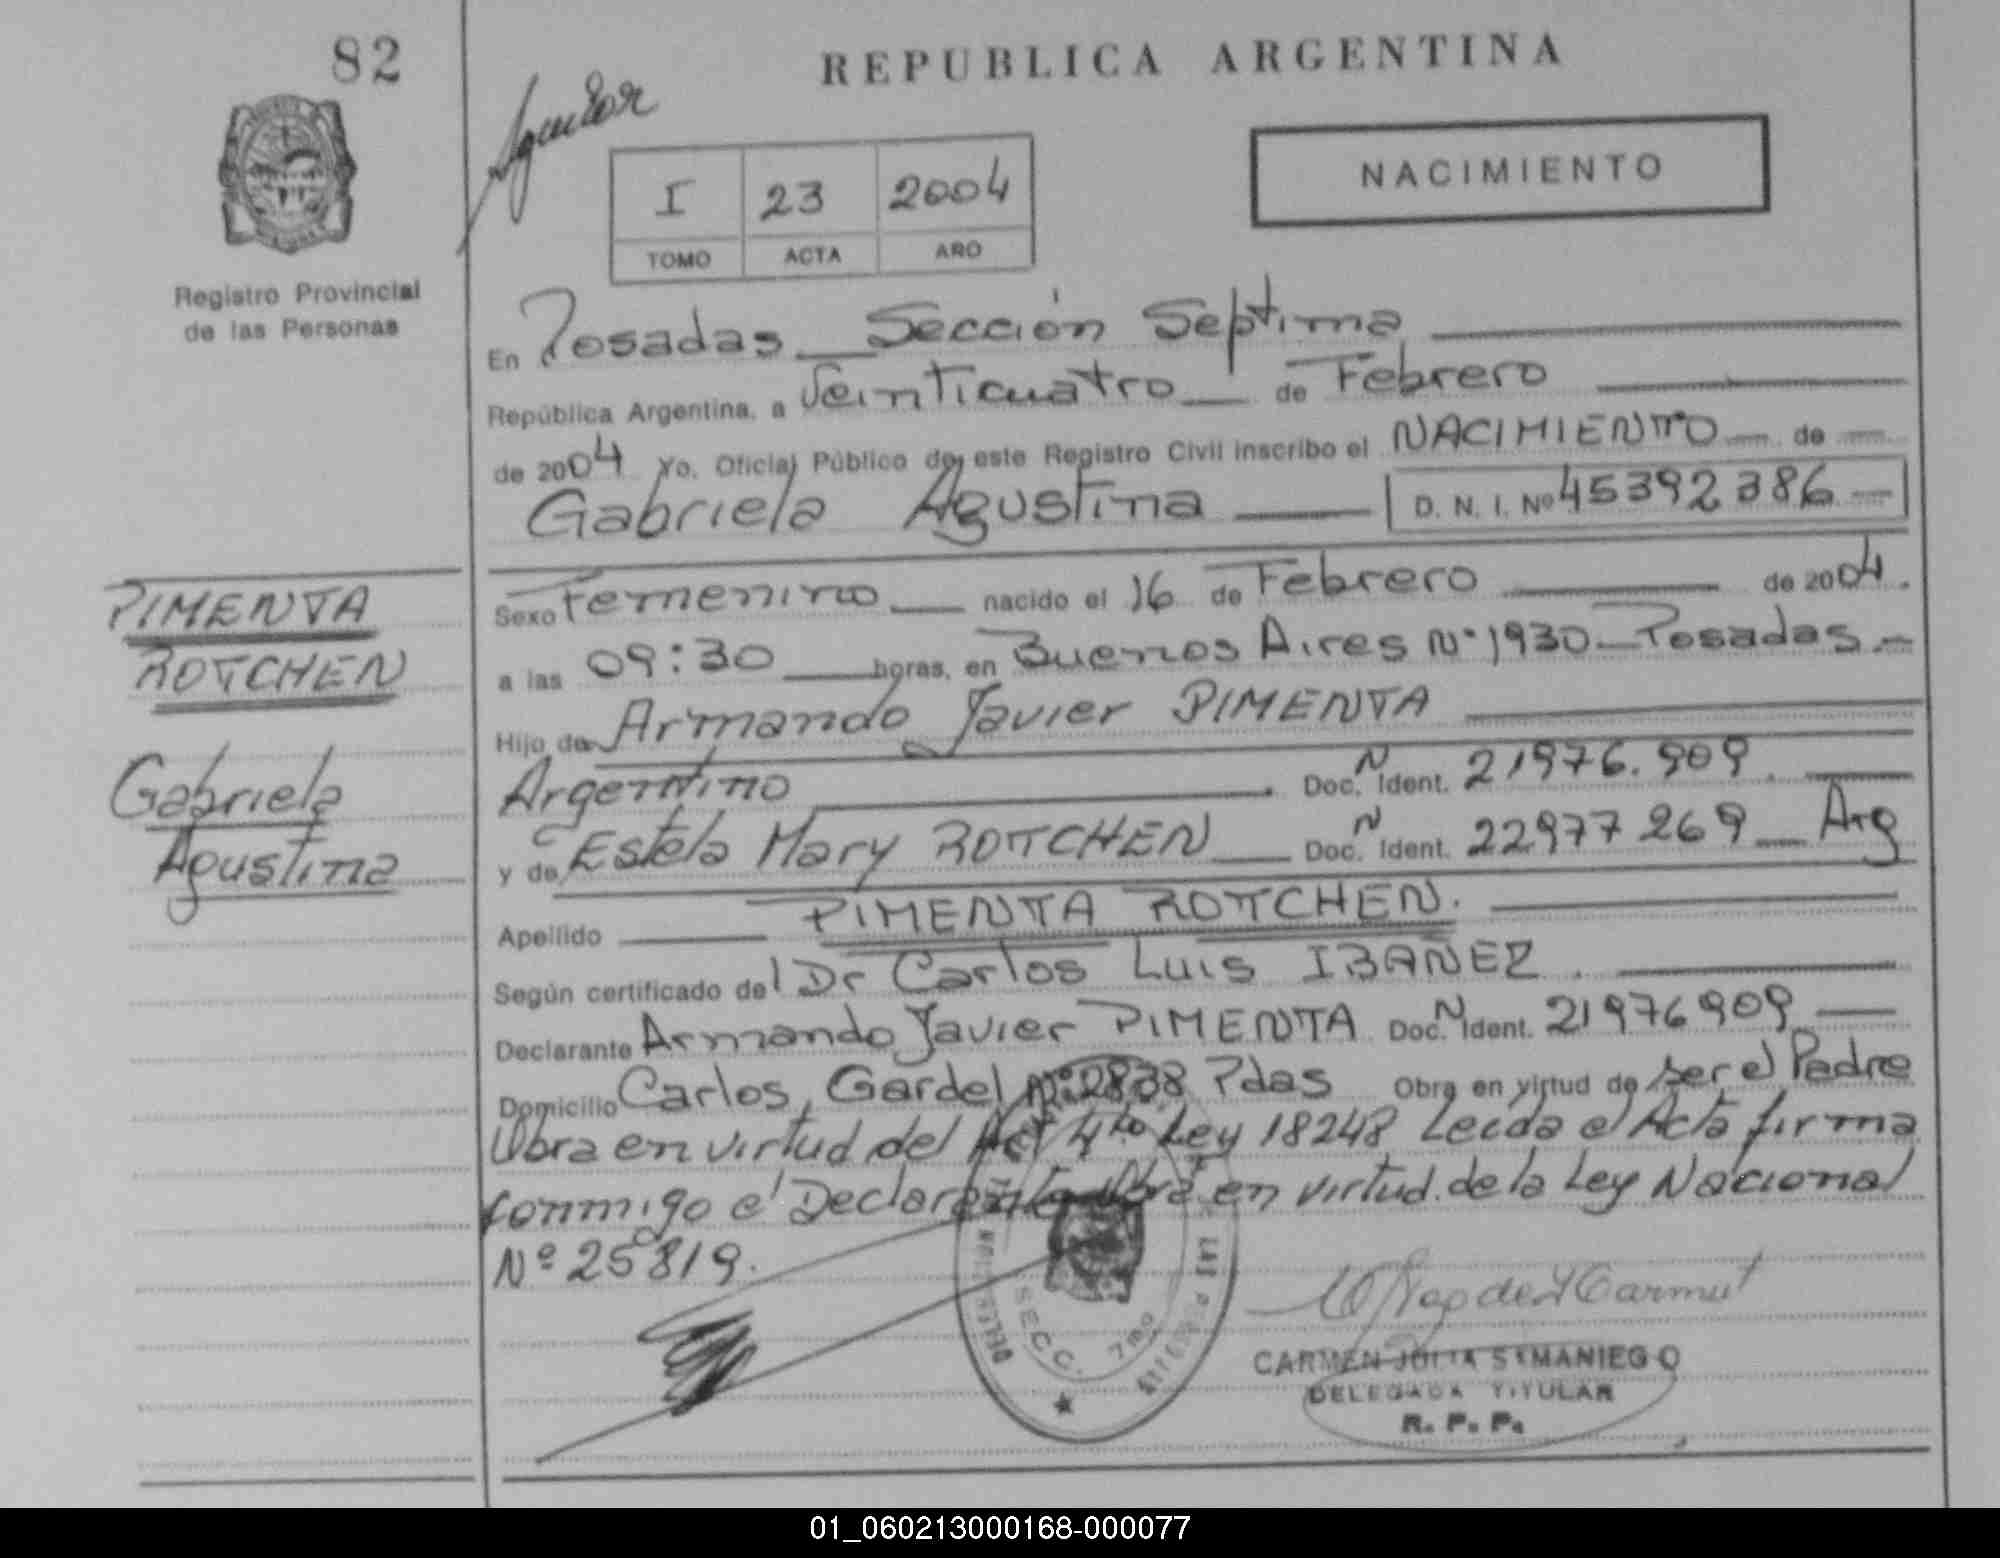 82
REPUBLICA ARGENTINA
Aguilar
I 23 2004
TOMO ACTA AÑO
NACIMIENTO
Registro Provincial
de las Personas
En Posadas Sección Septima
República Argentina, a Veinticuatro de Febrero
de 2004 Yo, Oficial Público de este Registro Civil inscribo el NACIMIENTO de
Gabriela Agustina D. N. I. Nº 45392386
PIMENTA
ROTTCHEN
Gabriela
Agustina
Sexo Femenino nacido el 16 de Febrero de 2004.
a las 09:30 horas, en Buenos Aires Nº 1930 Posadas
Hijo de Armando Javier PIMENTA
Argentino Doc. N Ident. 21976.909
y de Estela Mary ROTTCHEN Doc. N Ident. 22977269 Arg
Apellido PIMENTA ROTTCHEN.
Según certificado del Dr Carlos Luis IBAÑEZ
Declarante Armando Javier PIMENTA Doc. N Ident. 21976909
Domicilio Carlos Gardel Nº 2838 Pdas Obra en virtud de ser el Padre
Obra en virtud del Art 4to Ley 18248 Leida el Acta firma
conmigo el Declarante Obra en virtud de la Ley Nacional
Nº 25819.
SECC. 7ma
CARMEN JULIA SAMANIEGO
DELEGADA TITULAR
R. P. P.
01_060213000168-000077